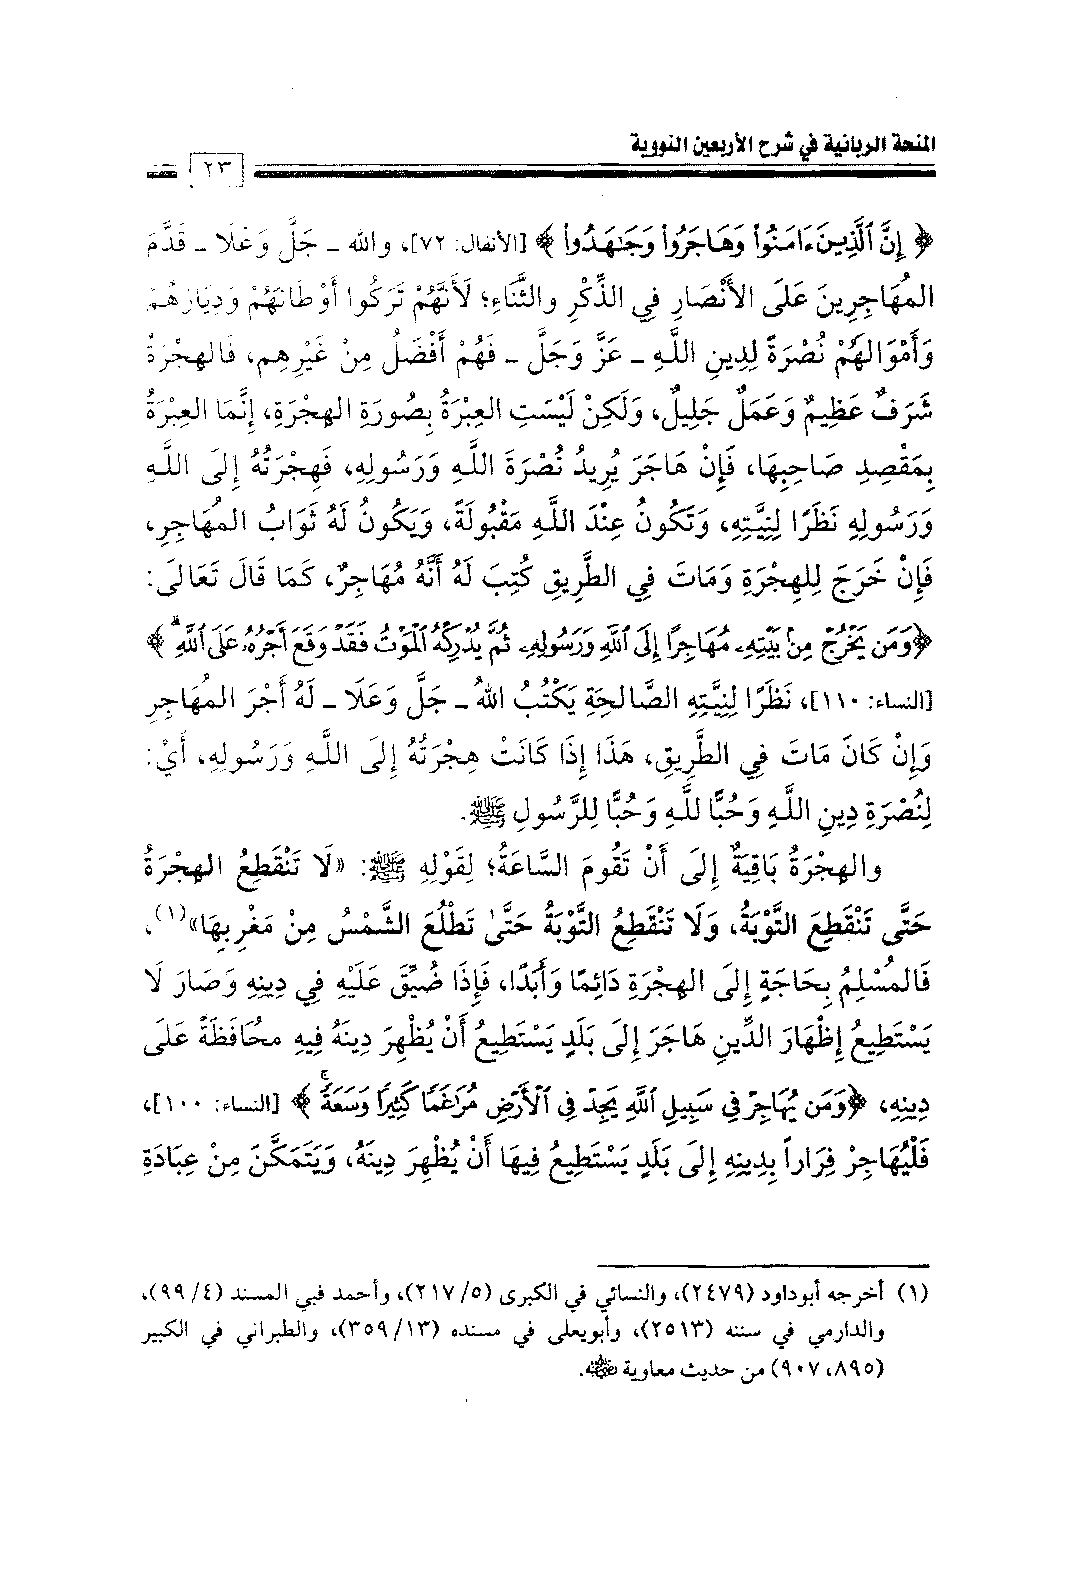 المنحة الربانية في شرح الأربعين النووية
٢٣
﴿ إِنَّ ٱلَّذِينَ ءَامَنُواْ وَهَاجَرُواْ وَجَٰهَدُواْ ﴾ [الأنفال: ٧٢]، والله ـ جَلَّ وَعَلَا ـ قَدَّمَ
المُهَاجِرِينَ عَلَى الأَنْصَارِ فِي الذِّكْرِ والثَّنَاءِ؛ لَأَنَّهُمْ تَرَكُوا أَوْطَانَهُمْ وَدِيَارَهُمْ
وَأَمْوَالَهُمْ نُصْرَةً لِدِينِ اللَّهِ ـ عَزَّ وَجَلَّ ـ فَهُمْ أَفْضَلُ مِنْ غَيْرِهِم، فَالهِجْرَةُ
شَرَفٌ عَظِيمٌ وَعَمَلٌ جَلِيلٌ، وَلَكِنْ لَيْسَتِ العِبْرَةُ بِصُورَةِ الهِجْرَةِ، إِنَّمَا العِبْرَةُ
بِمَقْصِدِ صَاحِبِهَا، فَإِنْ هَاجَرَ يُرِيدُ نُصْرَةَ اللَّهِ وَرَسُولِهِ، فَهِجْرَتُهُ إِلَى اللَّهِ
وَرَسُولِهِ نَظَرًا لِنِيَّتِهِ، وَتَكُونُ عِنْدَ اللَّهِ مَقْبُولَةً، وَيَكُونُ لَهُ ثَوَابُ المُهَاجِرِ،
فَإِنْ خَرَجَ لِلهِجْرَةِ وَمَاتَ فِي الطَّرِيقِ كُتِبَ لَهُ أَنَّهُ مُهَاجِرٌ، كَمَا قَالَ تَعَالَى:
﴿وَمَن يَخْرُجْ مِنۢ بَيْتِهِۦ مُهَاجِرًا إِلَى ٱللَّهِ وَرَسُولِهِۦ ثُمَّ يُدْرِكْهُ ٱلْمَوْتُ فَقَدْ وَقَعَ أَجْرُهُۥ عَلَى ٱللَّهِ ۗ ﴾
[النساء: ١١٠]، نَظَرًا لِنِيَّتِهِ الصَّالحَةِ يَكْتُبُ اللهُ ـ جَلَّ وَعَلَا ـ لَهُ أَجْرَ المُهَاجِرِ
وَإِنْ كَانَ مَاتَ فِي الطَّرِيقِ، هَذَا إِذَا كَانَتْ هِجْرَتُهُ إِلَى اللَّهِ وَرَسُولِهِ، أَيْ:
لِنُصْرَةِ دِينِ اللَّهِ وَحُبًّا للَّهِ وَحُبًّا لِلرَّسُولِ ﷺ.
والهِجْرَةُ بَاقِيَةٌ إِلَى أَنْ تَقُومَ السَّاعَةُ؛ لِقَوْلِهِ ﷺ: «لَا تَنْقَطِعُ الهِجْرَةُ
حَتَّى تَنْقَطِعَ التَّوْبَةُ، وَلَا تَنْقَطِعُ التَّوْبَةُ حَتَّى تَطْلُعَ الشَّمْسُ مِنْ مَغْرِبِهَا»(١)،
فَالمُسْلِمُ بِحَاجَةٍ إِلَى الهِجْرَةِ دَائِمًا وَأَبَدًا، فَإِذَا ضُيِّقَ عَلَيْهِ فِي دِينِهِ وَصَارَ لَا
يَسْتَطِيعُ إِظْهَارَ الدِّينِ هَاجَرَ إِلَى بَلَدٍ يَسْتَطِيعُ أَنْ يُظْهِرَ دِينَهُ فِيهِ محَافَظَةً عَلَى
دِينِهِ، ﴿وَمَن يُهَاجِرْ فِي سَبِيلِ ٱللَّهِ يَجِدْ فِي ٱلْأَرْضِ مُرَٰغَمًا كَثِيرًا وَسَعَةً ۚ ﴾ [النساء: ١٠٠]،
فَلْيُهَاجِرْ فِرَاراً بِدِينِهِ إِلَى بَلَدٍ يَسْتَطِيعُ فِيهَا أَنْ يُظْهِرَ دِينَهُ، وَيَتَمَكَّنَ مِنْ عِبَادَةِ
(١) أخرجه أبوداود (٢٤٧٩)، والنسائي في الكبرى (٥/ ٢١٧)، وأحمد في المسند (٤/ ٩٩)،
والدارمي في سننه (٢٥١٣)، وأبويعلى في مسنده (١٣/ ٣٥٩)، والطبراني في الكبير
(٨٩٥، ٩٠٧) من حديث معاوية رضي الله عنه.